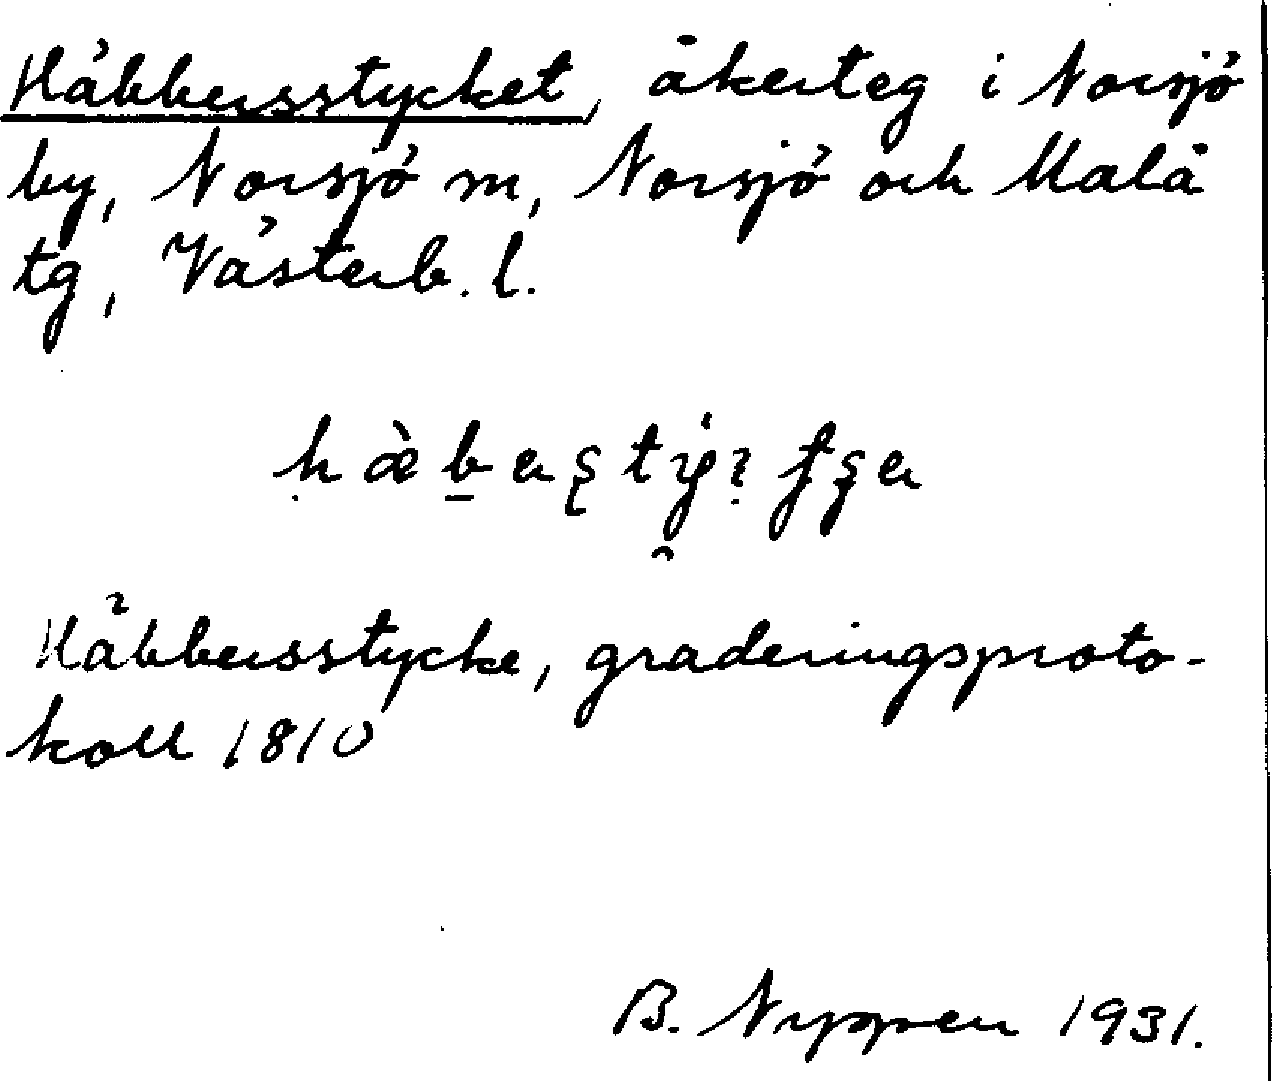 Häbbersstycket, åkerteg i Norsjö
by, Norsjö sn, Norsjö och Malå
tg, Västerb. l.
Häbbersstycke, graderingsproto-
koll 1810
B. 1931.